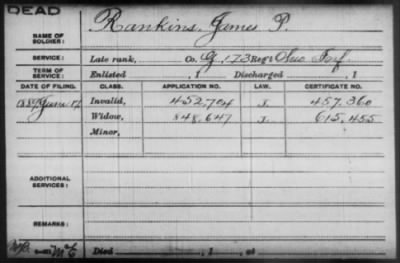 DEAD
NAME OF SOLDIER: Rankins, James P.
SERVICE: Late rank, Co. G, 173 Reg't Ohio Inf.
TERM OF SERVICE: Enlisted , 1 Discharged , 1
DATE OF FILING. CLASS. APPLICATION NO. LAW. CERTIFICATE NO.
June Invalid, 452,704 J. 457,360
Widow, 848,647 J. 615,455
Minor,
ADDITIONAL SERVICES:
REMARKS:
Died , 1 , at